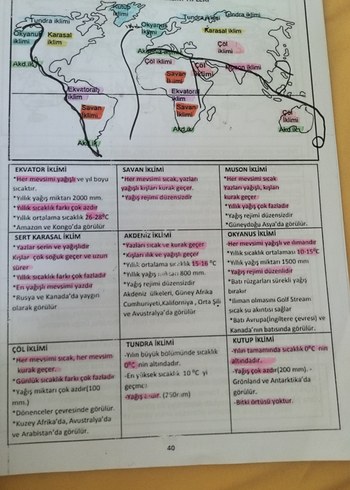 Tundra iklimi
Okyanus
iklimi
Karasal
iklim
Akd.ik
Ekvatoral
iklim
Savan
iklimi
Akd.ik
Okyanus
iklimi
Tundra iklimi
Tundra iklimi
Karasal iklim
Akdeniz iklimi
Çöl iklimi
Çöl
iklimi
Çöl
iklimi
Muson iklimi
Savan
iklimi
Ekvatoral
iklim
Savan
iklimi
Akd.ik
Çöl
iklimi
Akd.ik
EKVATOR İKLİMİ
*Her mevsimi yağışlı ve yıl boyu
sıcaktır.
*Yıllık yağış miktarı 2000 mm.
*Yıllık sıcaklık farkı çok azdır
*Yıllık ortalama sıcaklık 26-28°C
*Amazon ve Kongo'da görülür
SAVAN İKLİMİ
*Her mevsimi sıcak, yazları
yağışlı kışları kurak geçer.
*Yağış rejimi düzensizdir
MUSON İKLİMİ
*Her mevsimi sıcak
Yazları yağışlı, kışları
kurak geçer
*Yıllık yağış çok fazladır
*Yağış rejimi düzensizdir
*Güneydoğu Asya'da görülür.
SERT KARASAL İKLİM
*Yazlar serin ve yağışlıdır
Kışlar çok soğuk geçer ve uzun
sürer
*Yıllık sıcaklık farkı çok fazladır
*En yağışlı mevsimi yazdır
*Rusya ve Kanada'da yaygın
olarak görülür
AKDENİZ İKLİMİ
*Yazları sıcak ve kurak geçer
*Kışları ılık ve yağışlı geçer
*Yıllık ortalama sıcaklık 15-16 °C
*Yıllık yağış miktarı 800 mm.
*Yağış rejimi düzensizdir
Akdeniz ülkeleri, Güney Afrika
Cumhuriyeti,Kaliforniya , Orta Şili
ve Avustralya'da görülür
OKYANUS İKLİMİ
*Her mevsimi yağışlı ve ılımandır
*Yıllık sıcaklık ortalaması 10-15°C
*Yıllık yağış miktarı 1500 mm
*Yağış rejimi düzenlidir
*Batı rüzgarları sürekli yağış
bırakır
*Iliman olmasını Golf Stream
sıcak su akıntısı sağlar
*Batı Avrupa(İngiltere çevresi) ve
Kanada'nın batısında görülür.
ÇÖL İKLİMİ
*Her mevsimi sıcak, her mevsim
kurak geçer.
*Günlük sıcaklık farkı çok fazladır
*Yağış miktarı çok azdır(100
mm.)
*Dönenceler çevresinde görülür.
*Kuzey Afrika'da, Avustralya'da
ve Arabistan'da görülür.
TUNDRA İKLİMİ
-Yılın büyük bölümünde sıcaklık
0°C nin altındadır.
-En yüksek sıcaklık 10 °C yi
geçmez
-Yağış azdır. (250mm)
KUTUP İKLİMİ
-Yılın tamamında sıcaklık 0°C nin
altındadır.
-Yağış çok azdır(200 mm). -
Grönland ve Antarktika'da
görülür.
-Bitki örtüsü yoktur.
40